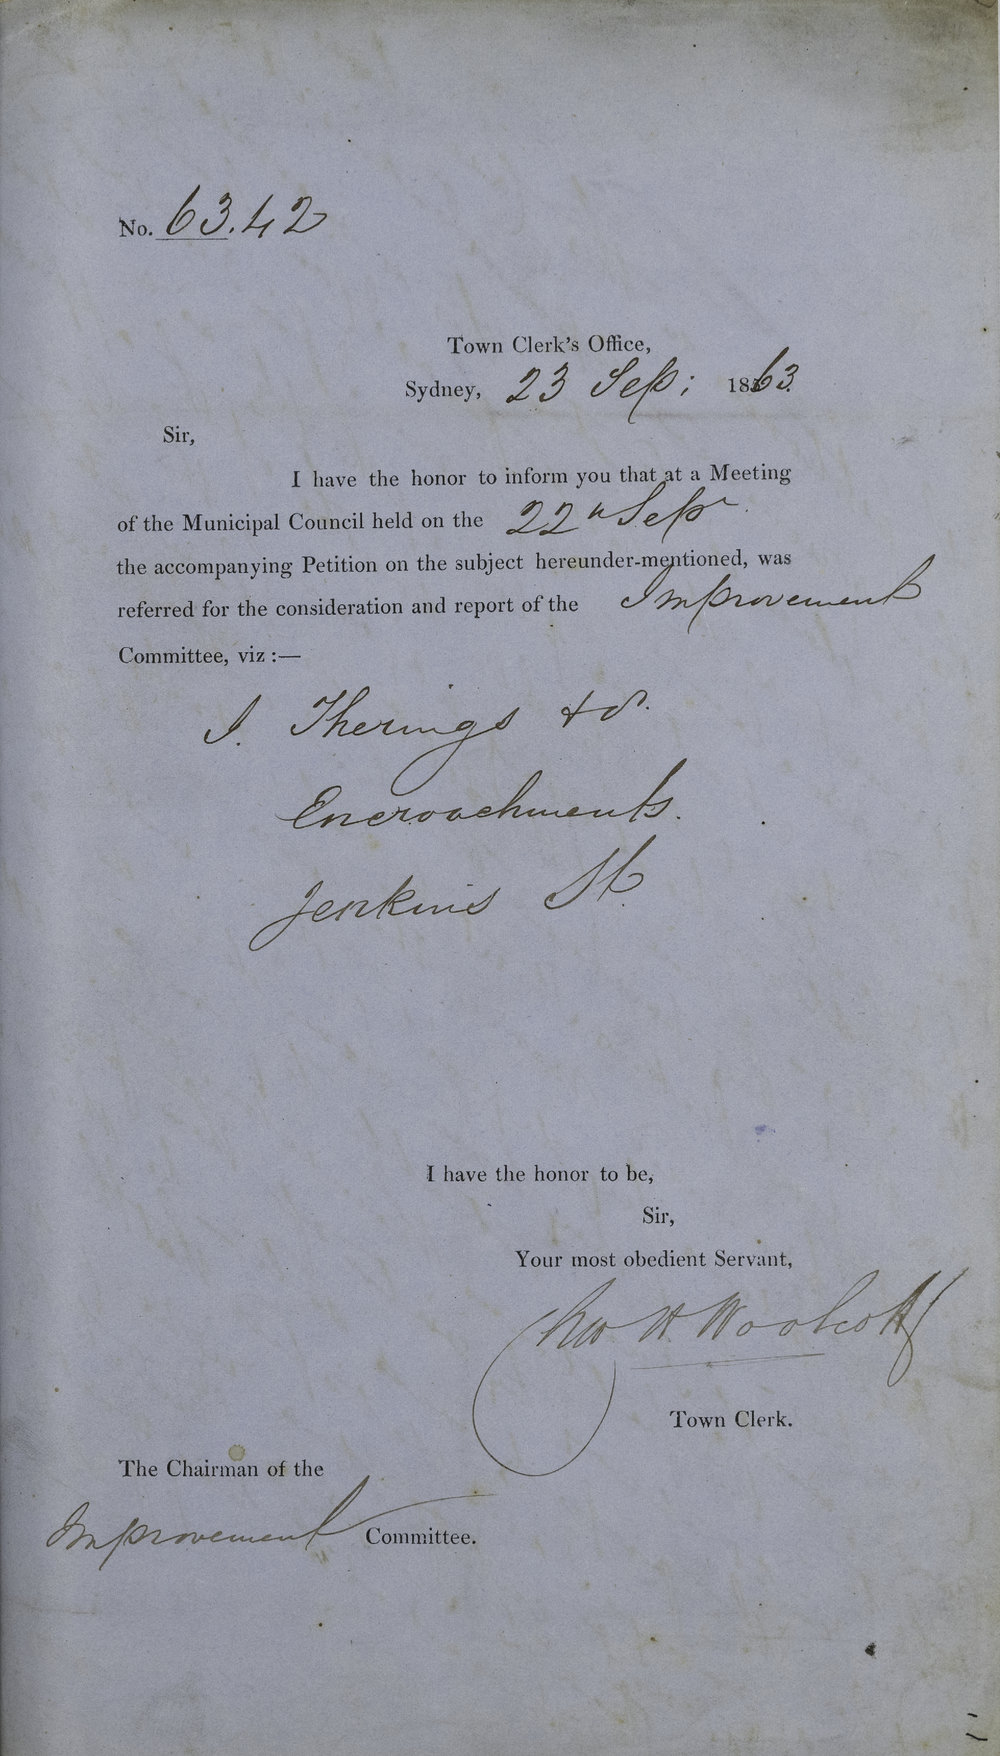 No. 63.42
Town Clerk's Office,
Sydney, 23 Sep: 1863.
Sir,
I have the honor to inform you that at a Meeting
of the Municipal Council held on the 22n Sepr
the accompanying Petition on the subject hereunder-mentioned, was
referred for the consideration and report of the Improvement
Committee, viz :—
J. Therings & Or.
Encroachments.
Jenkins St.
I have the honor to be,
Sir,
Your most obedient Servant,
Chas H. Woolcott
Town Clerk.
The Chairman of the
Improvement Committee.